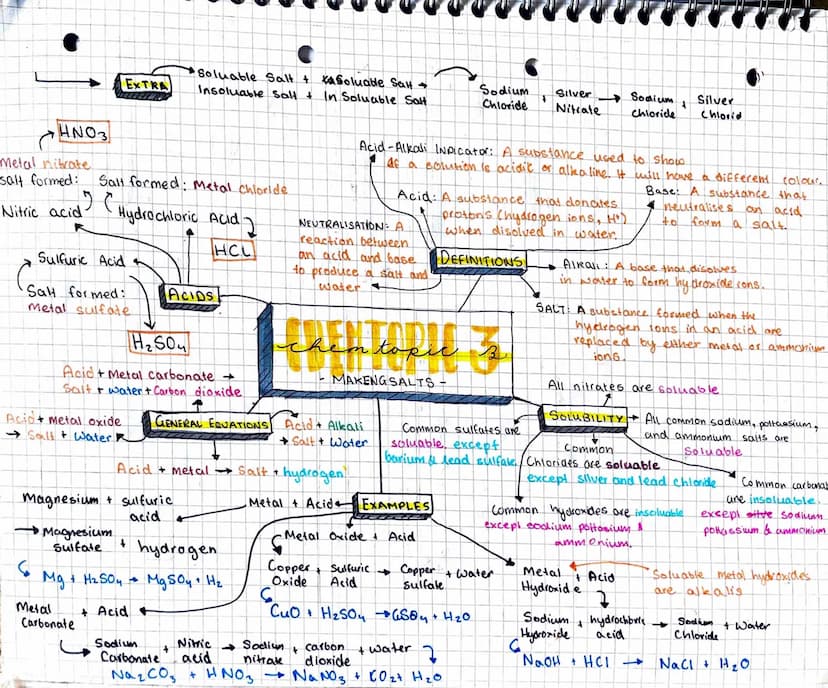 EXTRA
Soluable Salt + Soluable Salt →
Insoluable Salt + In Soluable Salt
Sodium Chloride + Silver Nitrate → Sodium chloride + Silver Chlorid
HNO3
Metal nitrate
Salt formed:
Nitric acid
Salt formed: Metal chloride
Hydrochloric Acid
HCL
Sulfuric Acid
Salt formed:
Metal sulfate
H2SO4
ACIDS
Acid-Alkali Indicator: A substance used to show
if a solution is acidic or alkaline. It will have a different colour.
Acid: A substance that donates
protons (hydrogen ions, H+)
when disolved in water.
Base: A substance that
neutralises an acid
to form a salt.
NEUTRALISATION: A
reaction between
an acid and base
to produce a salt and
water
DEFINITIONS
Alkali: A base that disolves
in water to form hydroxide ions.
SALT: A substance formed when the
hydrogen ions in an acid are
replaced by either metal or ammonium
ions.
CHEMTOPIC 3
chem topic 3
- MAKENGSALTS -
Acid + Metal carbonate →
Salt + water + Carbon dioxide
GENERAL EQUATIONS
Acid + metal oxide
→ Salt + Water
Acid + Alkali
→ Salt + Water
Acid + metal → Salt + hydrogen
All nitrates are soluable
SOLUBILITY
All common sodium, pottassium,
and ammonium salts are
soluable
Common sulfates are
soluable, except
barium & lead sulfate.
Common
Chlorides are soluable
except silver and lead chloride
Common carbonat
are insoluable
except sodium
pottassium & ammonium
Common hydroxides are insoluable
except sodium pottasium &
ammonium.
EXAMPLES
Metal + Acid
Magnesium + sulfuric
acid
→ Magnesium
sulfate + hydrogen
Mg + H2SO4 → MgSO4 + H2
Metal Oxide + Acid
Copper Oxide + Sulfuric Acid → Copper sulfate + Water
CuO + H2SO4 → CuSO4 + H2O
Metal Hydroxide + Acid
Soluable metal hydroxides
are alkalis
Sodium Hydroxide + hydrochloric acid → Sodium Chloride + Water
NaOH + HCl → NaCl + H2O
Metal
Carbonate + Acid
Sodium Carbonate + Nitric acid → Sodium nitrate + carbon dioxide + water
Na2CO3 + HNO3 → NaNO3 + CO2 + H2O